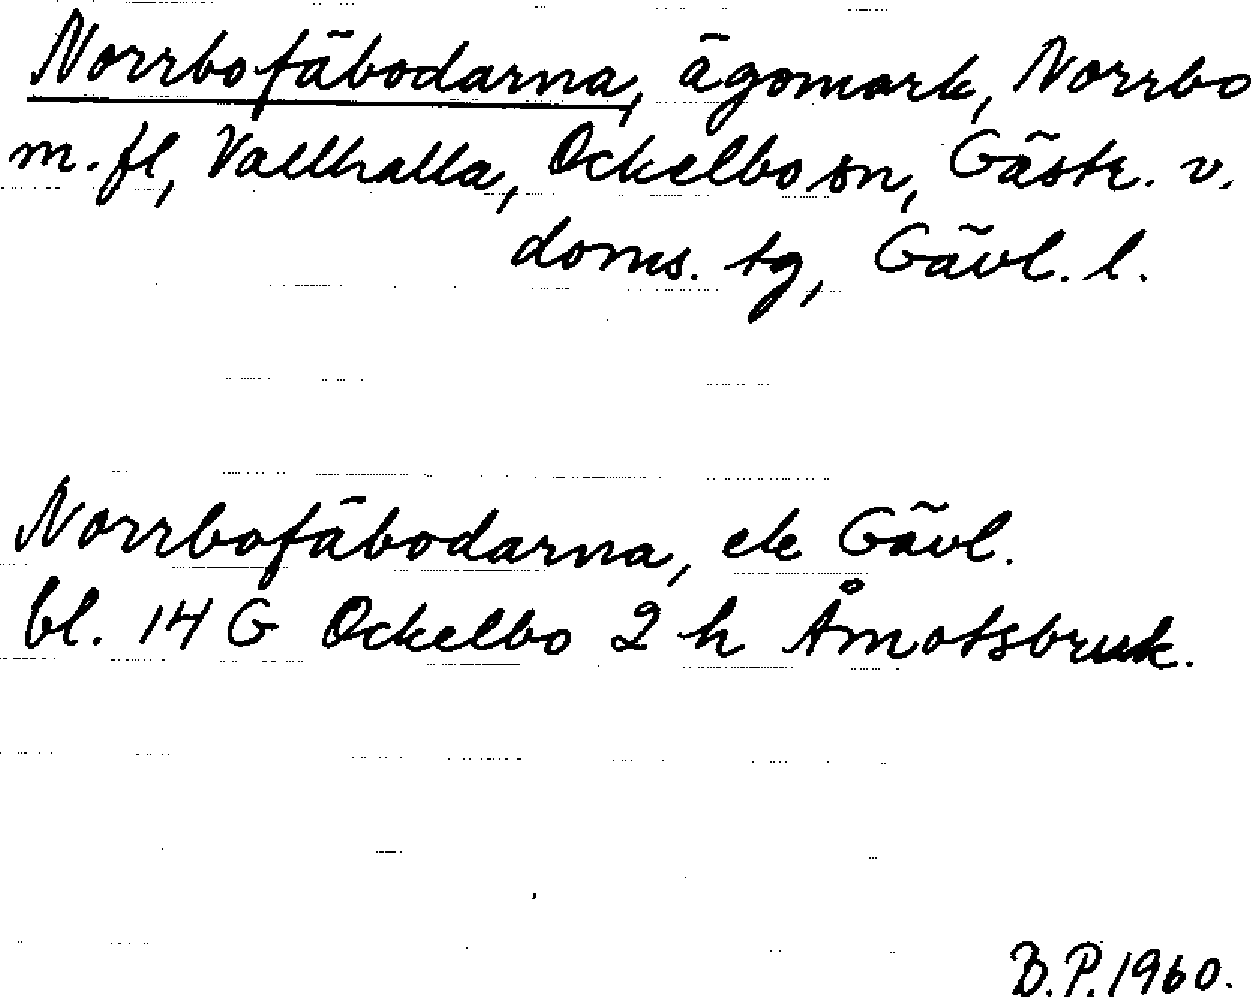 Norrbofäbodarna, ägomark, Norrbo
m.fl, Vallhalla, Ockelbo sn, Gästr. v.
doms. tg, Gävl. l.
Norrbofäbodarna, ek Gävl.
bl. 14 G Ockelbo 2 h Åmotsbruk.
B.P. 1960.